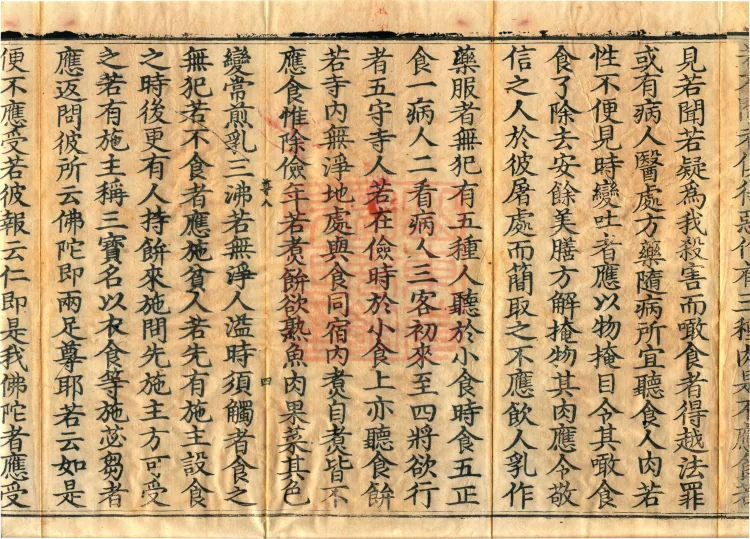 見若聞若疑為我殺害而噉食者得越法罪
或有病人醫處方藥隨病所宜聽食人肉若
性不便見時變吐者應以物掩目令其噉食
食了除去安餘美膳方解掩物其肉應令敬
信之人於彼屠處而簡取之不應飲人乳作
藥服者無犯有五種人聽於小食時食五正
食一病人二看病人三客初來至四將欲行
者五守寺人若在儉時於小食上亦聽食餅
若寺內無淨地處與食同宿內煑自煑皆不
應食惟除儉年若煑餅欲熟魚肉果菜其色
四
變常煎乳三沸若無淨人溢時須觸者食之
無犯若不食者應施貧人若先有施主設食
之時後更有人持餅來施問先施主方可受
之若有施主稱三寶名以衣食等施苾芻者
應返問彼所云佛陀即兩足尊耶若云如是
便不應受若彼報云仁即是我佛陀者應受